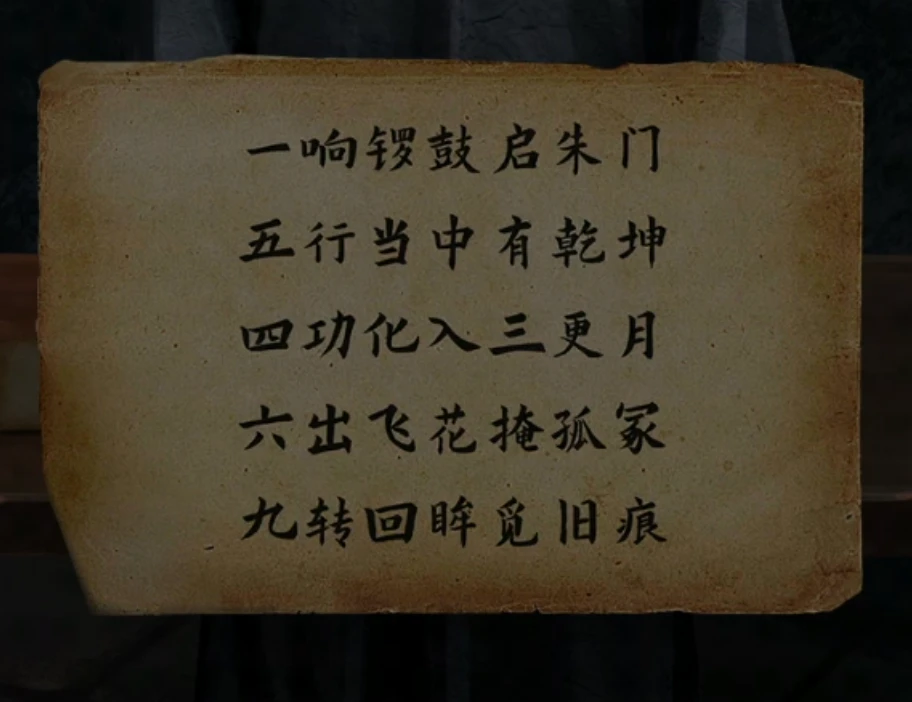 一响锣鼓启朱门
五行当中有乾坤
四功化入三更月
六出飞花掩孤冢
九转回眸觅旧痕